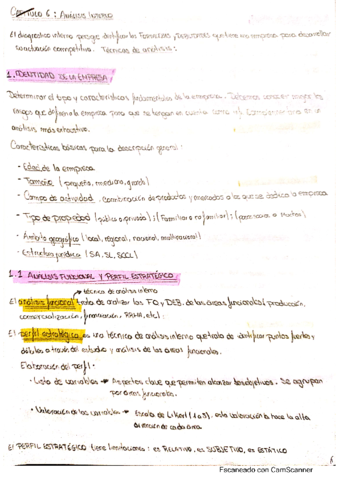 CAPÍTULO 6: ANÁLISIS INTERNO
El diagnóstico interno persigue identificar las FORTALEZAS y DEBILIDADES que tiene una empresa para desarrollar
su actuación competitiva. Técnicas de análisis:
1. IDENTIDAD DE LA EMPRESA
Determinar el tipo y características fundamentales de la empresa. Debemos conocer siempre los
rasgos que definen la empresa para que se tengan en cuenta como Complementarlo en un
análisis más exhaustivo.
Características básicas para la descripción general:
- Edad de la empresa
- Tamaño (pequeña, mediana, grande)
- Campo de actividad. Combinación de productos y mercados a los que se dedica la empresa
- Tipo de propiedad (pública o privada); (Familiar o no familiar);
- Ámbito geográfico (local, regional, nacional, multinacional)
- Estructura jurídica (SA, SL, SCCL)
1.1 ANÁLISIS FUNCIONAL Y PERFIL ESTRATÉGICO
técnica de análisis interno
El análisis funcional trata de analizar las FO y DEB. de las áreas funcionales (producción,
comercialización, financiación, RRHH, etc);
El perfil estratégico es una técnica de análisis interno que trata de identificar puntos fuertes y
débiles a través del estudio y análisis de las áreas funcionales.
Elaboración del perfil:
- Lista de variables → Aspectos clave que permiten alcanzar los objetivos. Se agrupan
por áreas funcionales.
- Valoración de las variables → Escala de Likert (1 a 5), esta valoración la hace la alta
dirección de cada área
El PERFIL ESTRATÉGICO tiene limitaciones: es RELATIVO, es SUBJETIVO, es ESTÁTICO
Escaneado con CamScanner